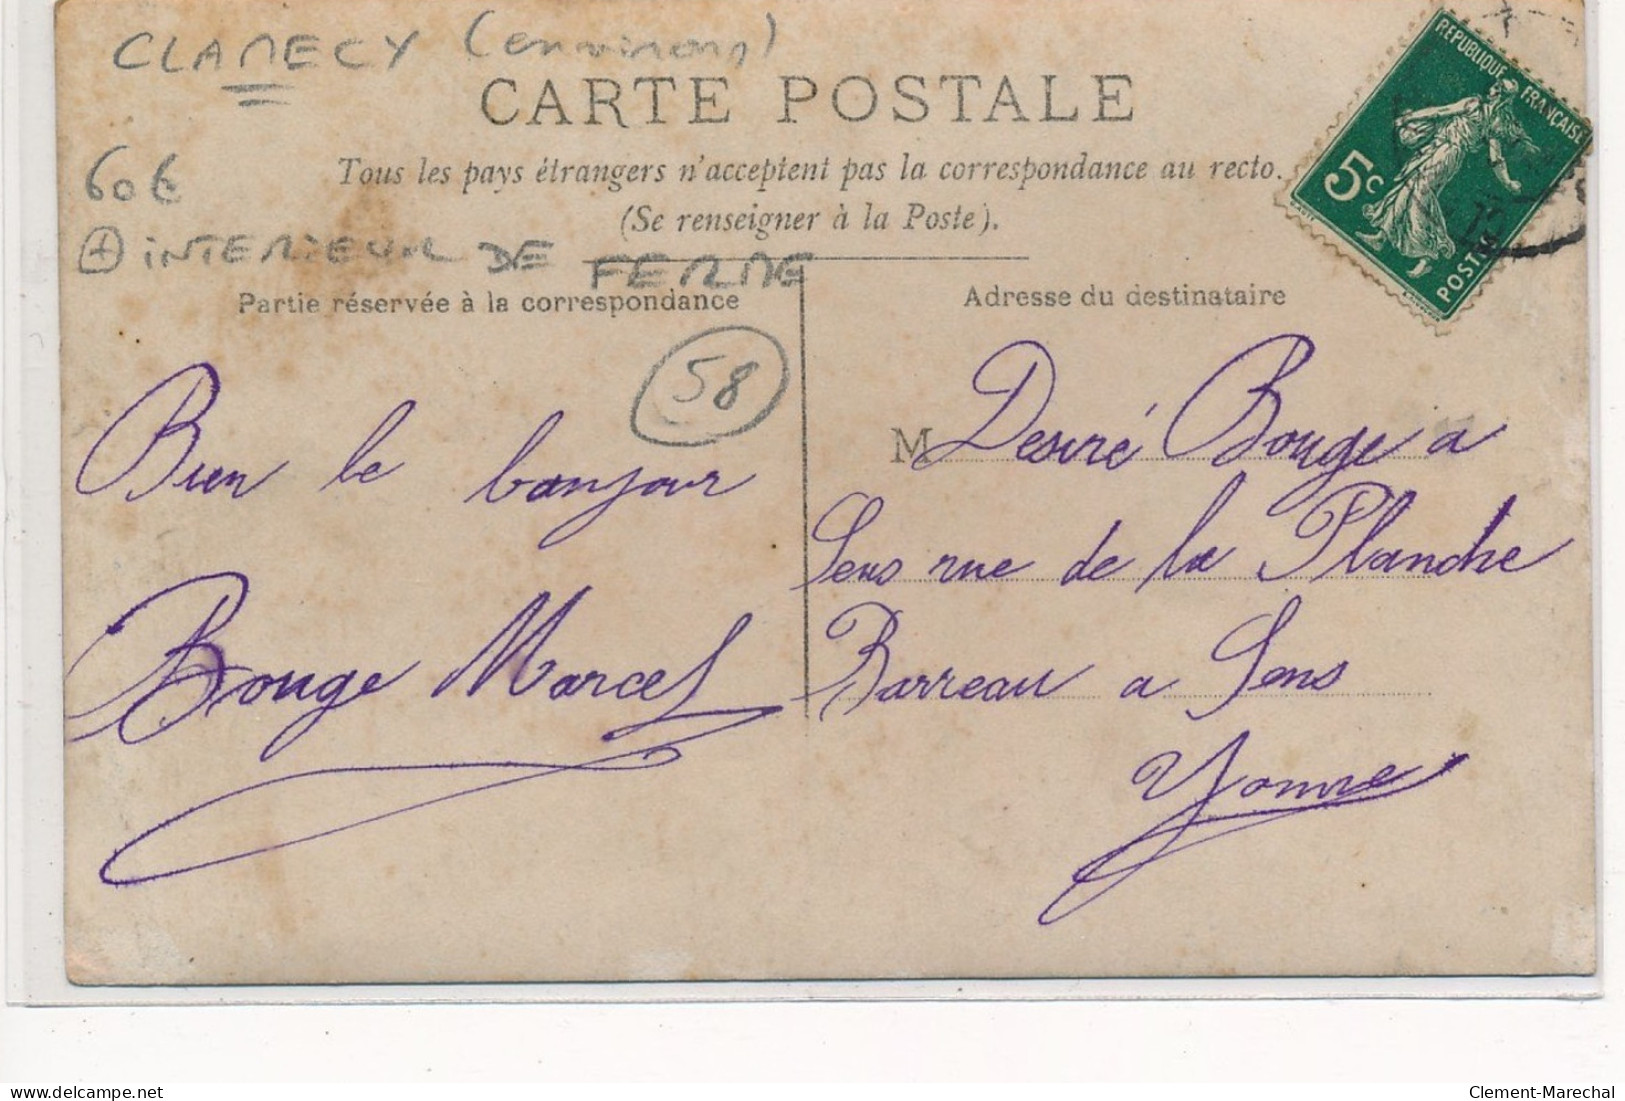 CLAMECY (environs)
CARTE POSTALE
Tous les pays étrangers n'acceptent pas la correspondance au recto.
(Se renseigner à la Poste).
60€
+ INTERIEUR DE FERME
Partie réservée à la correspondance
58
Bien le bonjour
Bouge Marcel
REPUBLIQUE FRANÇAISE
5c
POSTES
Adresse du destinataire
M Desiré Bouge a
Sens rue de la Planche
Barreau a Sens
Yonne
delcampe.net
Clement-Marechal